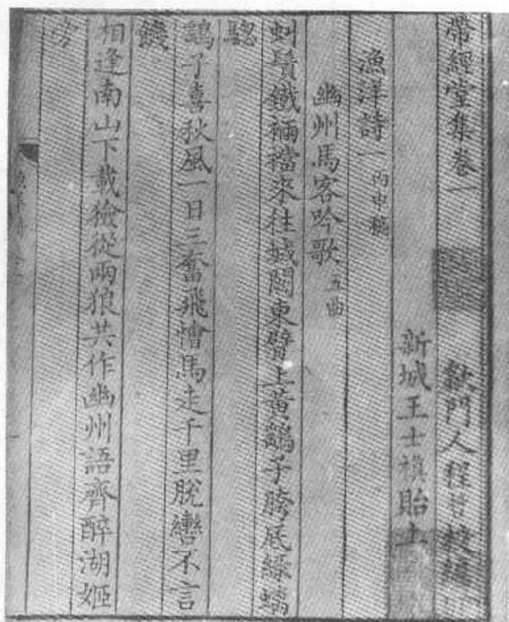 帶經堂集卷一
歙門人程哲校編
新城王士禛貽上
漁洋詩一 丙申稿
幽州馬客吟歌 五曲
虯鬚鐵裲襠來往城關東臂上黃鷂子胯底綠螭
驄
鷂子喜秋風一日三奮飛馬走千里脫轡不言
饑
相逢南山下載獫從兩狼共作幽州語齊醉湖姬
旁